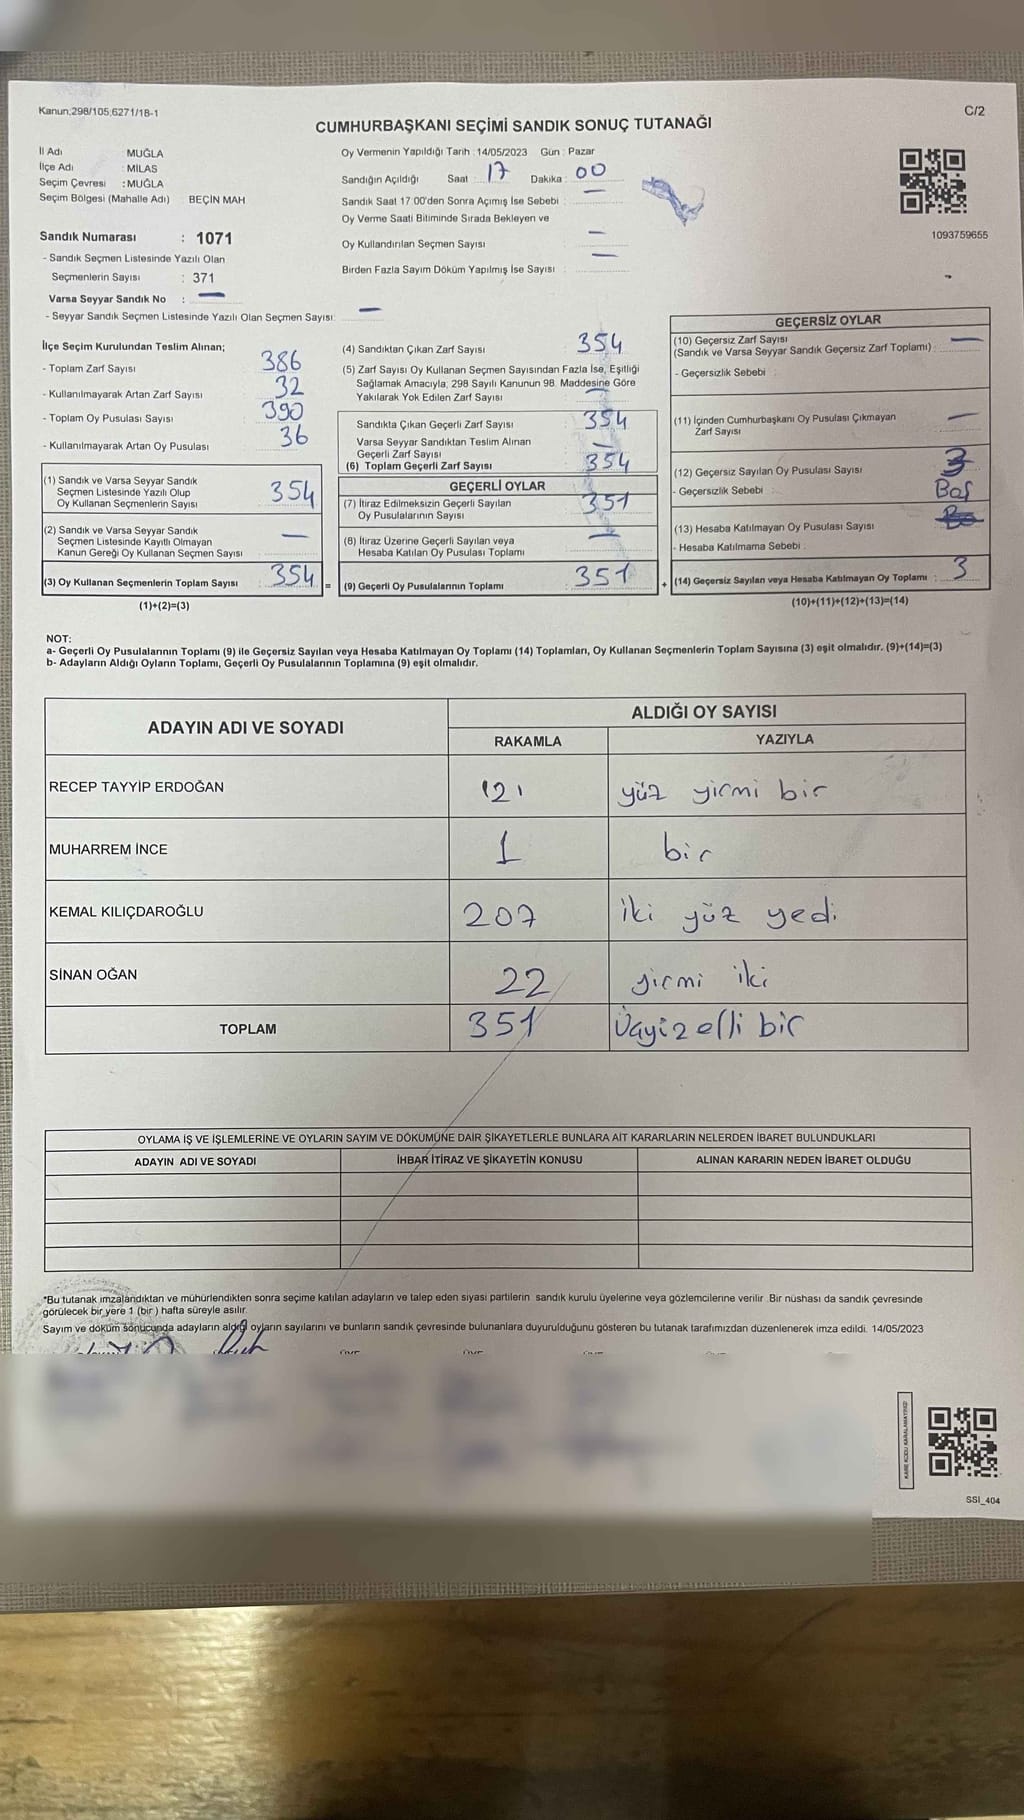 Kanun;298/105;6271/18-1
C/2
CUMHURBAŞKANI SEÇİMİ SANDIK SONUÇ TUTANAĞI
İl Adı : MUĞLA
İlçe Adı : MİLAS
Seçim Çevresi : MUĞLA
Seçim Bölgesi (Mahalle Adı) BEÇİN MAH
Oy Vermenin Yapıldığı Tarih : 14/05/2023 Gün : Pazar
Sandığın Açıldığı Saat : 17 Dakika : 00
Sandık Saat 17 00'den Sonra Açımış İse Sebebi : —
Oy Verme Saati Bitiminde Sırada Bekleyen ve
Oy Kullandırılan Seçmen Sayısı : —
Birden Fazla Sayım Döküm Yapılmış İse Sayısı : —
1093759655
Sandık Numarası : 1071
- Sandık Seçmen Listesinde Yazılı Olan
Seçmenlerin Sayısı : 371
Varsa Seyyar Sandık No : —
- Seyyar Sandık Seçmen Listesinde Yazılı Olan Seçmen Sayısı: —
İlçe Seçim Kurulundan Teslim Alınan;
- Toplam Zarf Sayısı 386
- Kullanılmayarak Artan Zarf Sayısı 32
- Toplam Oy Pusulası Sayısı 390
- Kullanılmayarak Artan Oy Pusulası 36
(1) Sandık ve Varsa Seyyar Sandık
Seçmen Listesinde Yazılı Olup
Oy Kullanan Seçmenlerin Sayısı 354
(2) Sandık ve Varsa Seyyar Sandık
Seçmen Listesinde Kayıtlı Olmayan
Kanun Gereği Oy Kullanan Seçmen Sayısı —
(3) Oy Kullanan Seçmenlerin Toplam Sayısı 354 =
(1)+(2)=(3)
(4) Sandıktan Çıkan Zarf Sayısı 354
(5) Zarf Sayısı Oy Kullanan Seçmen Sayısından Fazla İse, Eşitliği
Sağlamak Amacıyla, 298 Sayılı Kanunun 98. Maddesine Göre
Yakılarak Yok Edilen Zarf Sayısı —
Sandıkta Çıkan Geçerli Zarf Sayısı 354
Varsa Seyyar Sandıktan Teslim Alınan
Geçerli Zarf Sayısı —
(6) Toplam Geçerli Zarf Sayısı 354
GEÇERLİ OYLAR
(7) İtiraz Edilmeksizin Geçerli Sayılan
Oy Pusulalarının Sayısı 351
(8) İtiraz Üzerine Geçerli Sayılan veya
Hesaba Katılan Oy Pusulası Toplamı —
(9) Geçerli Oy Pusulalarının Toplamı 351 +
GEÇERSİZ OYLAR
(10) Geçersiz Zarf Sayısı
(Sandık ve Varsa Seyyar Sandık Geçersiz Zarf Toplamı) : —
- Geçersizlik Sebebi :
(11) İçinden Cumhurbaşkanı Oy Pusulası Çıkmayan
Zarf Sayısı —
(12) Geçersiz Sayılan Oy Pusulası Sayısı 3
- Geçersizlik Sebebi : Boş
(13) Hesaba Katılmayan Oy Pusulası Sayısı
- Hesaba Katılmama Sebebi :
(14) Geçersiz Sayılan veya Hesaba Katılmayan Oy Toplamı : 3
(10)+(11)+(12)+(13)=(14)
NOT:
a- Geçerli Oy Pusulalarının Toplamı (9) ile Geçersiz Sayılan veya Hesaba Katılmayan Oy Toplamı (14) Toplamları, Oy Kullanan Seçmenlerin Toplam Sayısına (3) eşit olmalıdır. (9)+(14)=(3)
b- Adayların Aldığı Oyların Toplamı, Geçerli Oy Pusulalarının Toplamına (9) eşit olmalıdır.
ADAYIN ADI VE SOYADI
ALDIĞI OY SAYISI
RAKAMLA YAZIYLA
RECEP TAYYİP ERDOĞAN 121 yüz yirmi bir
MUHARREM İNCE 1 bir
KEMAL KILIÇDAROĞLU 207 iki yüz yedi
SİNAN OĞAN 22 yirmi iki
TOPLAM 351 Üçyüz elli bir
OYLAMA İŞ VE İŞLEMLERİNE VE OYLARIN SAYIM VE DÖKÜMÜNE DAİR ŞİKAYETLERLE BUNLARA AİT KARARLARIN NELERDEN İBARET BULUNDUKLARI
ADAYIN ADI VE SOYADI İHBAR İTİRAZ VE ŞİKAYETİN KONUSU ALINAN KARARIN NEDEN İBARET OLDUĞU
*Bu tutanak imzalandıktan ve mühürlendikten sonra seçime katılan adayların ve talep eden siyasi partilerin sandık kurulu üyelerine veya gözlemcilerine verilir. Bir nüshası da sandık çevresinde
görülecek bir yere 1 (bir ) hafta süreyle asılır.
Sayım ve döküm sonucunda adayların aldığı oyların sayılarını ve bunların sandık çevresinde bulunanlara duyurulduğunu gösteren bu tutanak tarafımızdan düzenlenerek imza edildi. 14/05/2023
KARE KODU KARALAMAYINIZ!
SSI_404